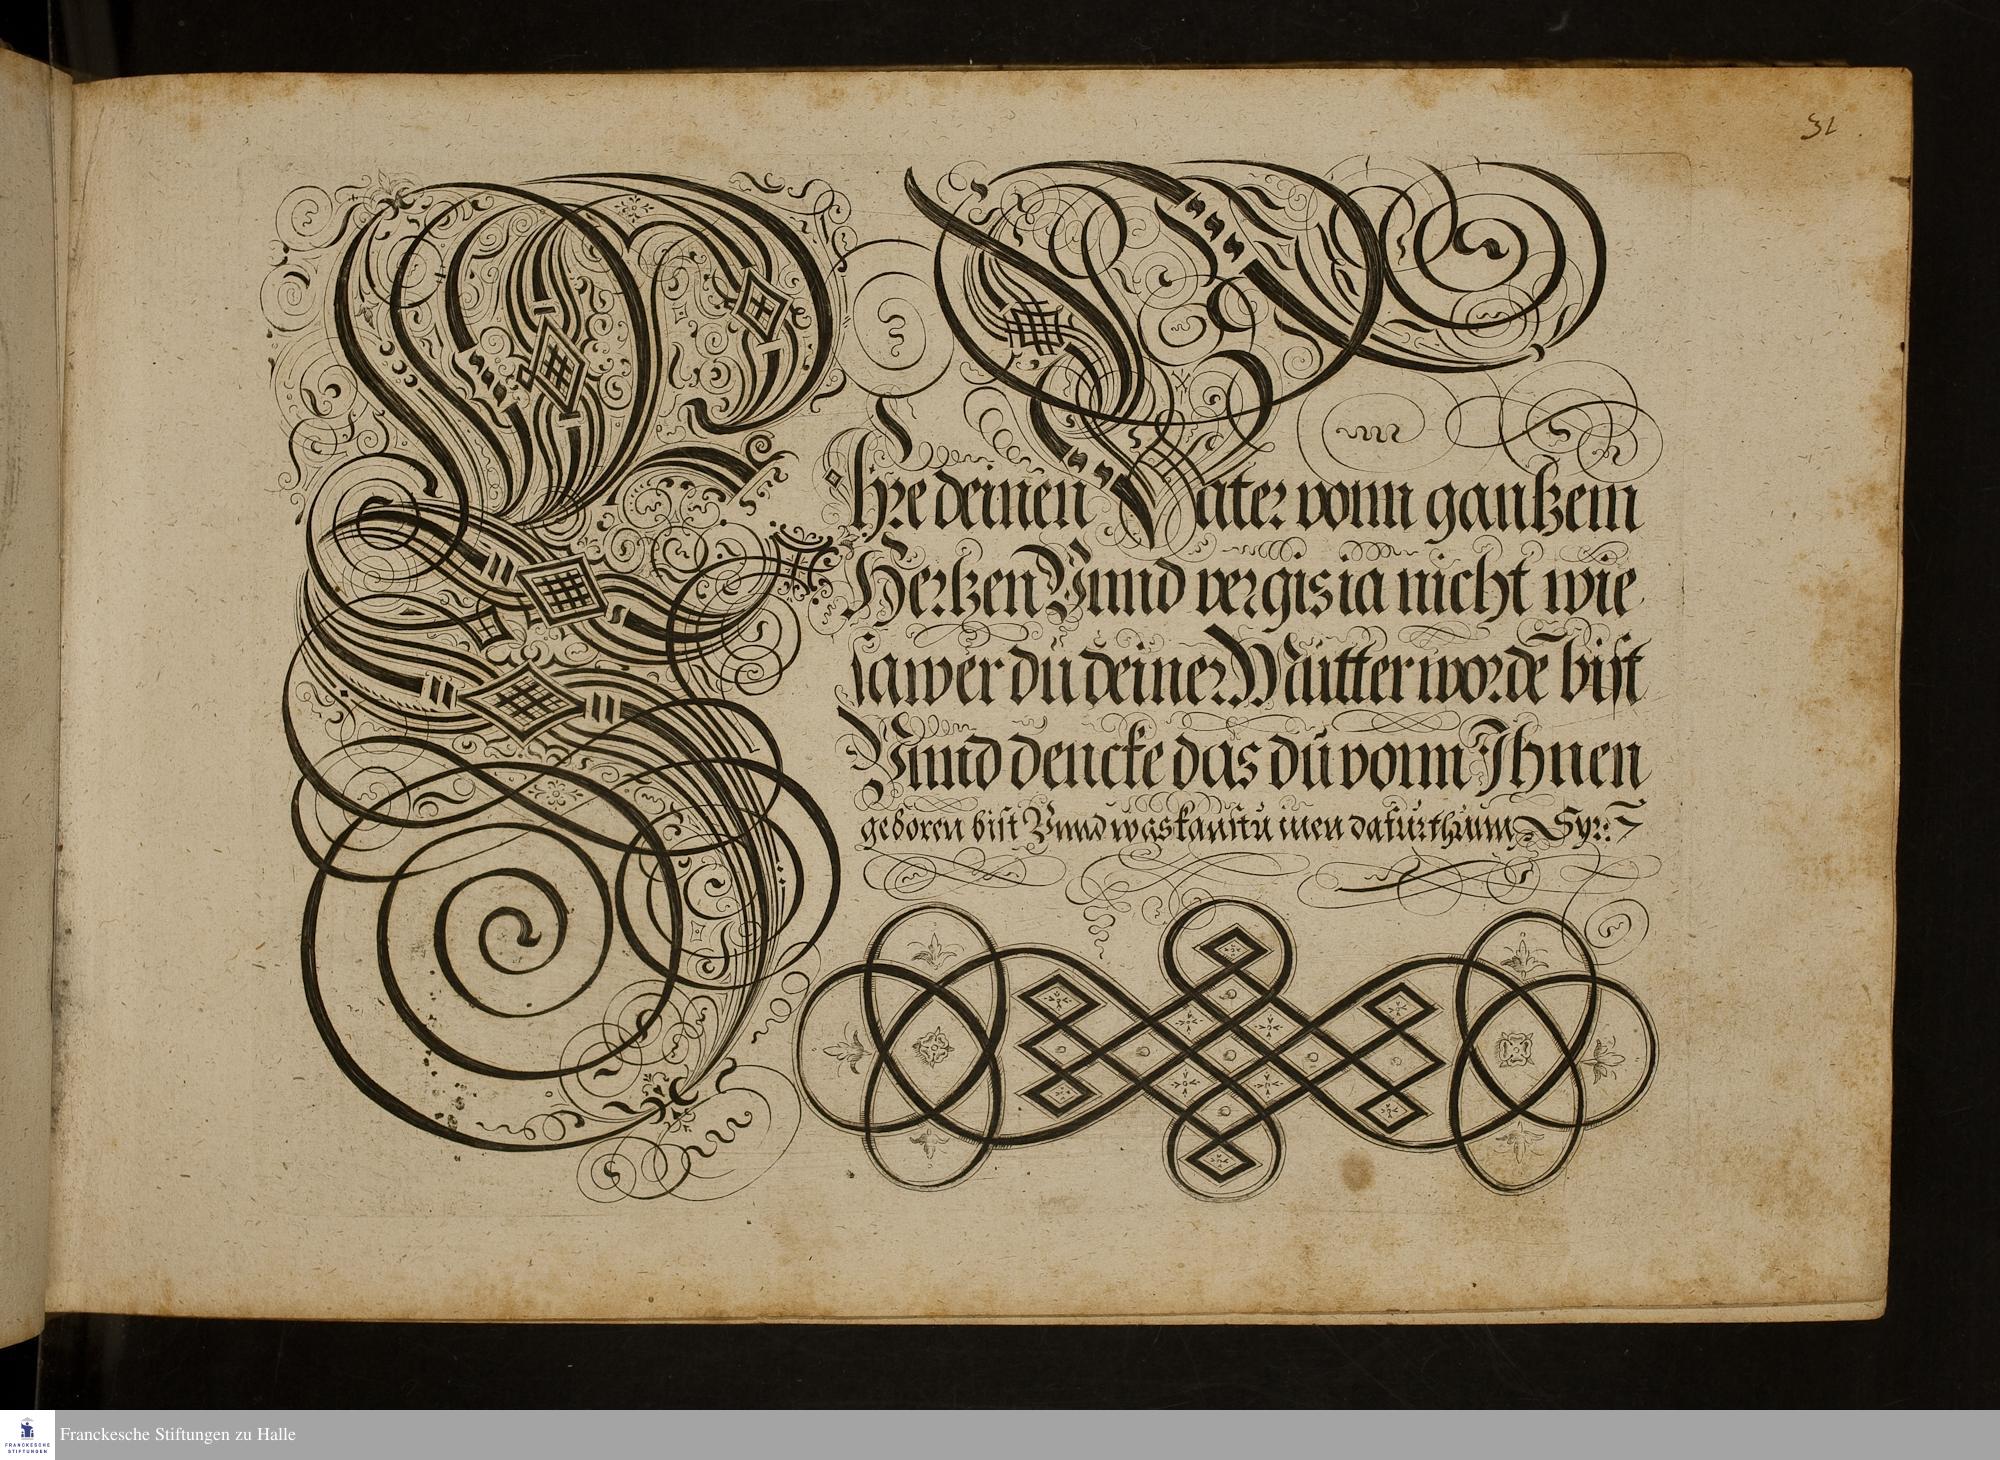 31
Ehre deinen Vater vonn gantzem
Hertzen Vnnd vergis ia nicht wie
sawer du deiner Mutter wordē bist
Vnnd dencke das du vonn Ihnen
geboren bist Vnnd was kanstu inen dafur thunn Syr: 7
Franckesche Stiftungen zu Halle
FRANCKESCHE
STIFTUNGEN